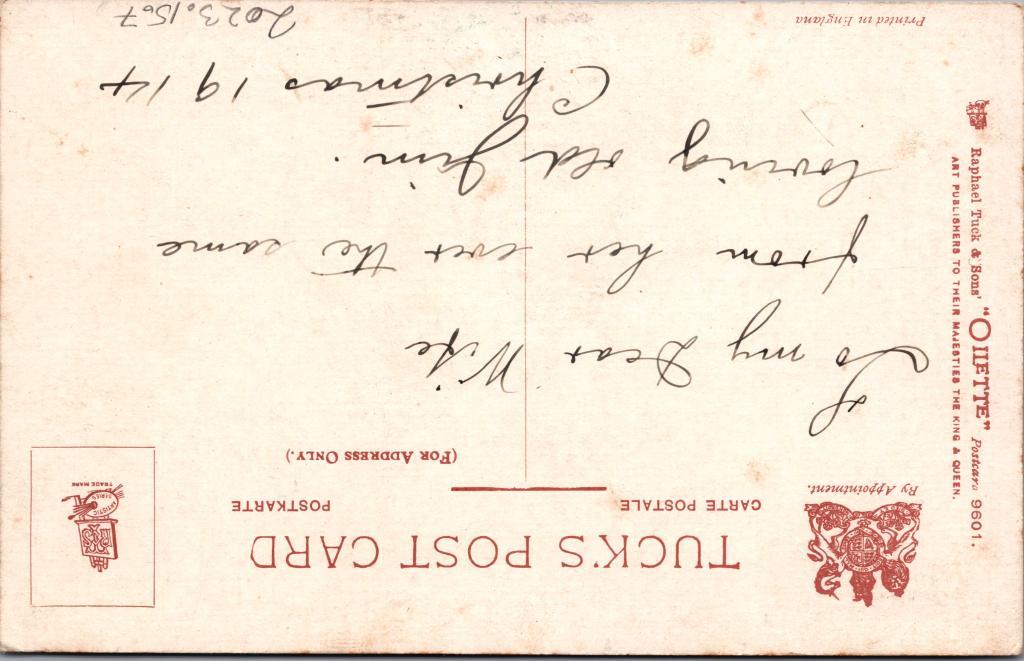 TUCK'S POST CARD
CARTE POSTALE
POSTKARTE
(FOR ADDRESS ONLY.)
By Appointment.
ARTISTIC
SERIES
TRADE MARK
To my Dear Wife
from her ever the same
loving old Jim.
Christmas 1914
2023.15.7
Raphael Tuck & Sons' "OILETTE" Postcard 9601.
ART PUBLISHERS TO THEIR MAJESTIES THE KING & QUEEN.
Printed in England